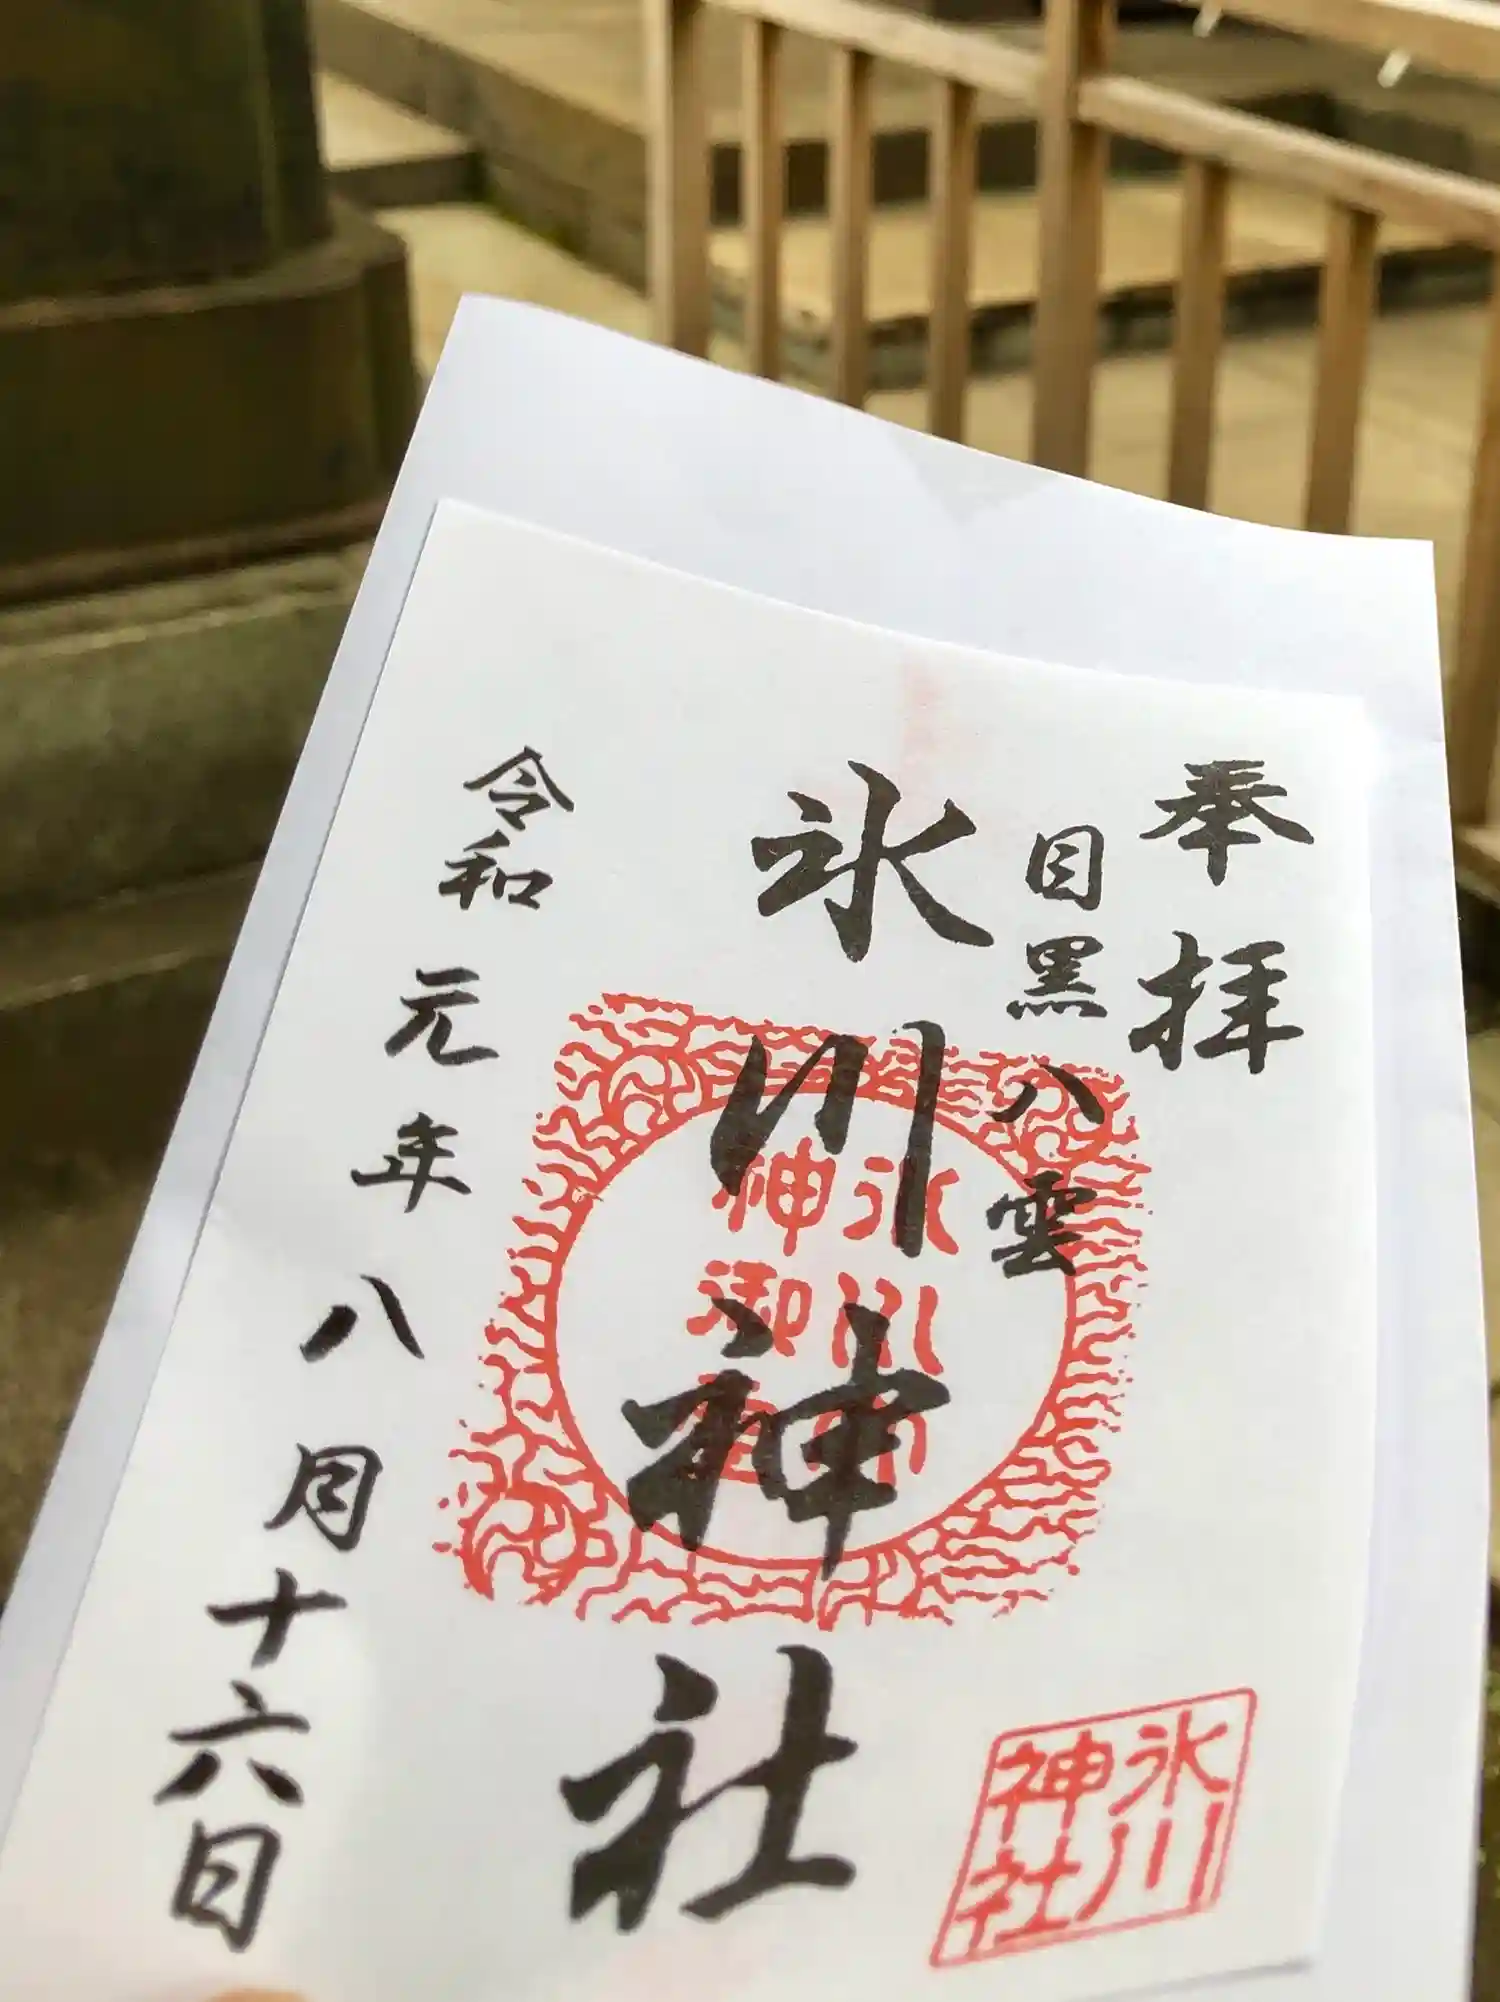 奉拝
目黒八雲
氷川神社
氷川
神御
氷川
神社
令和元年八月十六日